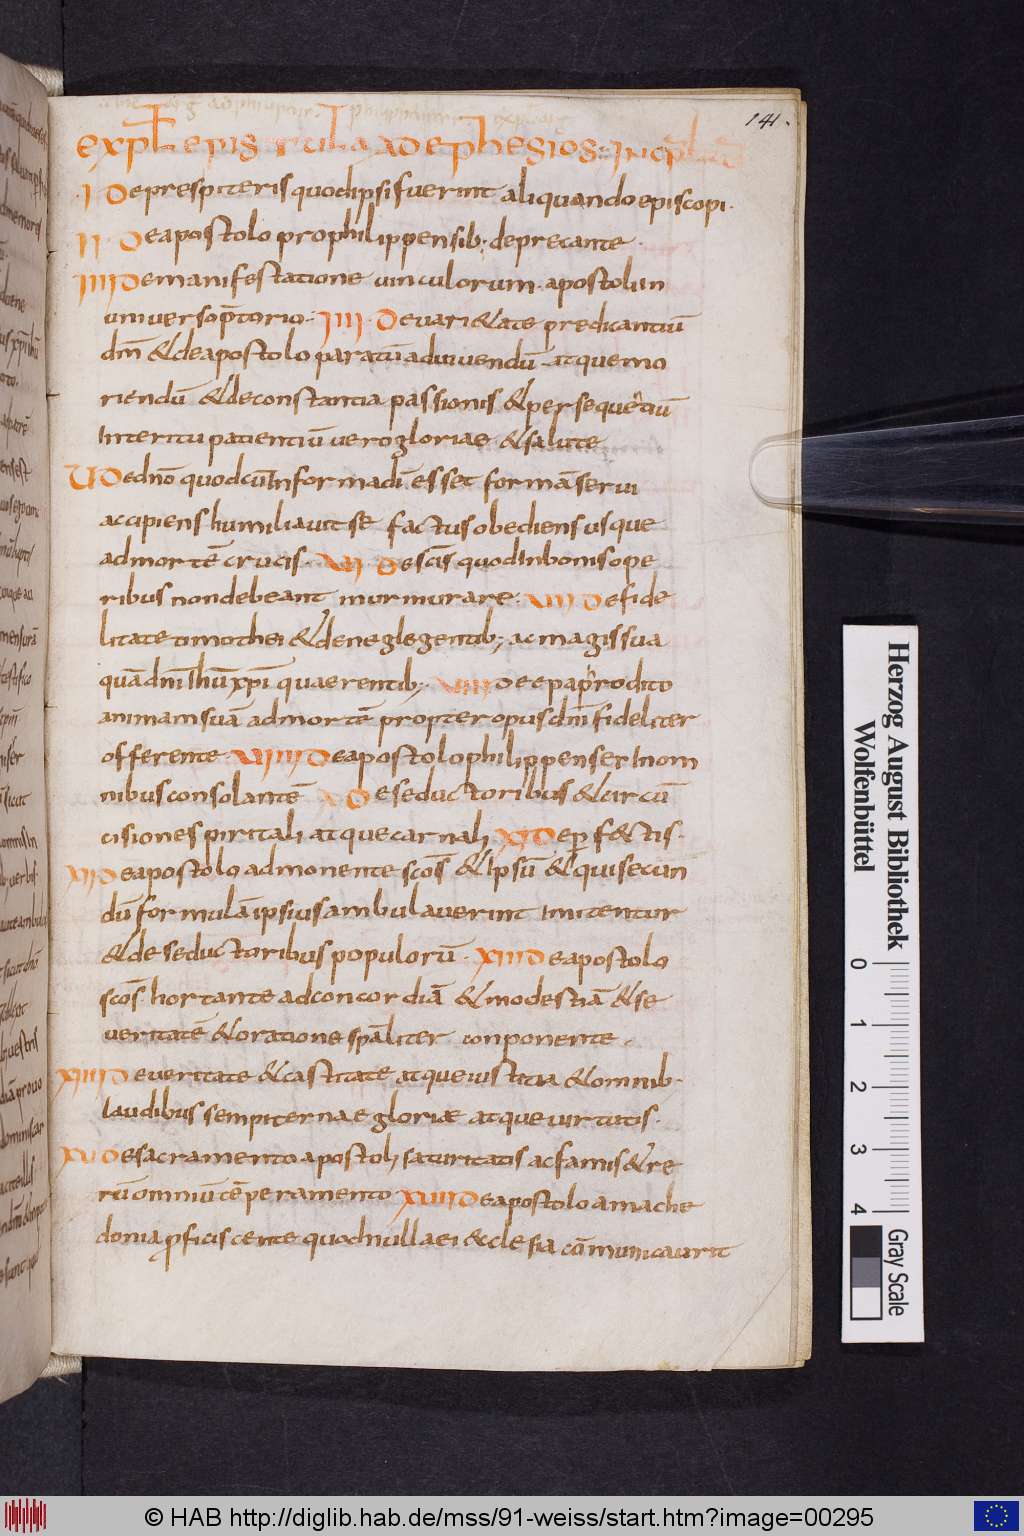 141.
expł epistula ad ephesios: incp̄
I De prespiteris quod ipsi fuerint aliquando episcopi.
II. De apostolo pro philippensib; deprecante.
IIII De manifestatione vinculorum apostoli in
universo p̄torio. IIII. De vari&ate predicantiū
dm̄ &de apostolo paratū ad vivendū atque mo
riendū &de constantia passionis &persequētiū
Interitu patientiū vero gloriae &salute
V De dn̄o quod cū In forma dī esset formā servi
accipiens humiliavit se factus obediens usque
ad mortē crucis. VI De sc̄is quod In bonis ope
ribus non debeant murmurare. VII De fide
litate timothei &de neglegentib; ac magis sua
quā dn̄i ihū xp̄i quaerentib; VIII De epaprodito
animam suā ad mortē propter opus dn̄i fideliter
offerente. VIIII De apostolo philippenser In om
nibus consolantē X De seductoribus &circū
cisione spiritali atque carnali XI De perf&ctis.
XII De apostolo admonente sc̄os &Ipsū &qui secun
dū formulā ipsius ambulaverint Imitentur
&de seductoribus populorū. XIII De apostolo
sc̄os hortante ad concordiā &modestiā &se
veritatē &oratione spāliter conponente.
XIIII De veritate &castitate atque iustitia &omnib.
laudibus sempiternae gloriae atque virtutis.
XV De sacramento apostoli saturitatis ac famis &re
rū omniū tēperamento XVIII De apostolo a mache
donia proficiscente quod nulla ei &cclesia cōmunicaverit
Herzog August Bibliothek
Wolfenbüttel
0 1 2 3 4
Gray Scale
© HAB http://diglib.hab.de/mss/91-weiss/start.htm?image=00295